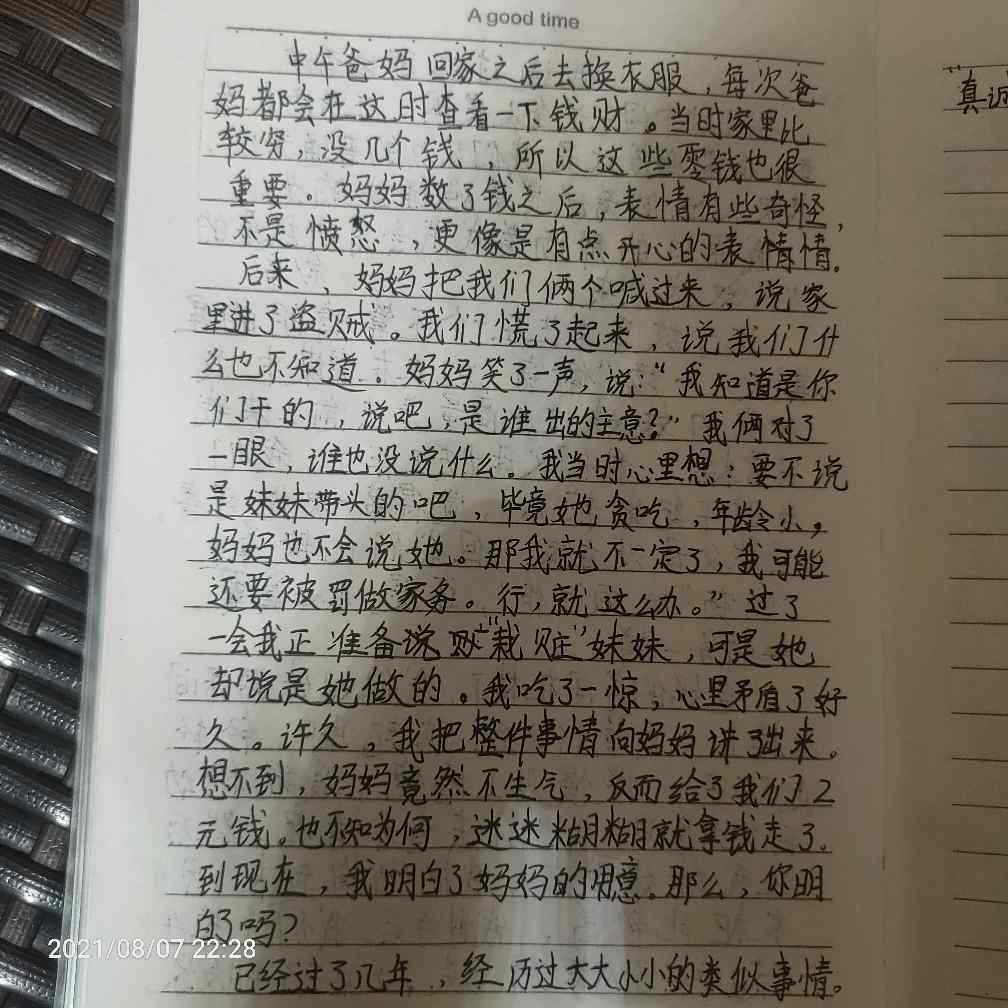 A good time
中午爸妈回家之后去换衣服，每次爸
妈都会在这时查看一下钱财。当时家里比
较穷，没几个钱，所以这些零钱也很
重要。妈妈数了钱之后，表情有些奇怪，
不是愤怒，更像是有点开心的表情情。
后来，妈妈把我们俩个喊过来，说家
里进了盗贼。我们慌了起来，说我们什
么也不知道。妈妈笑了一声，说：“我知道是你
们干的，说吧，是谁出的主意？”我俩对了
一眼，谁也没说什么。我当时心里想：要不说
是妹妹带头的吧，毕竟她贪吃，年龄小，
妈妈也不会说她。那我就不一定了，我可能
还要被罚做家务。行，就这么办。”过了
一会我正准备说“栽赃”妹妹，可是她
却说是她做的。我吃了一惊，心里矛盾了好
久。许久，我把整件事情向妈妈讲了出来。
想不到，妈妈竟然不生气，反而给了我们2
元钱。也不知为何，迷迷糊糊就拿钱走了。
到现在，我明白了妈妈的用意。那么，你明
白了吗？
已经过了几年，经历过大大小小的类似事情。
真诉
2021/08/07 22:28